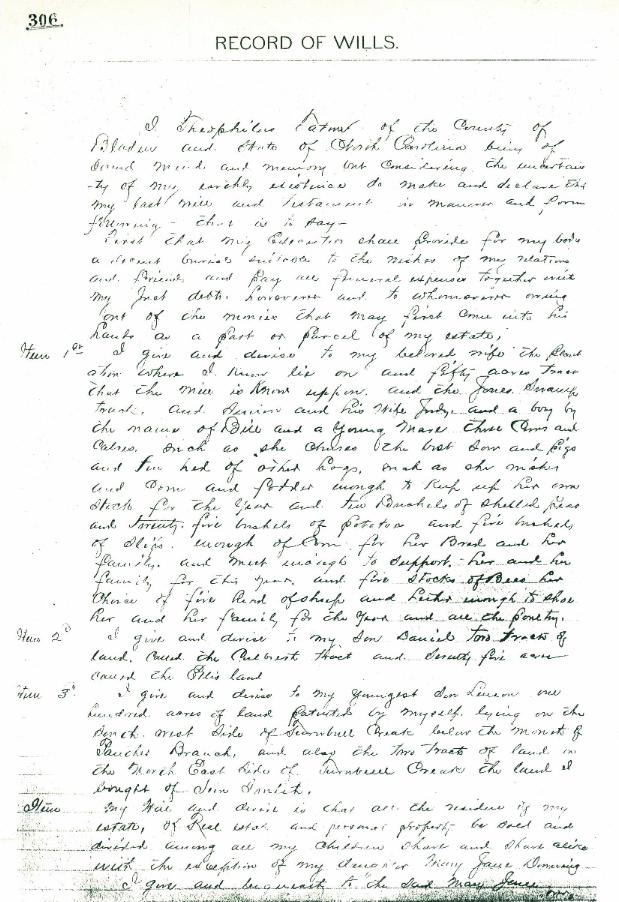 306
RECORD OF WILLS.
I Theophilus Tatom of the County of
Bladen and State of North Carolina being of
Sound mind and memory but Considering the uncertain
-ty of my earthly existence do make and declare this
my last will and testament in manner and form
following - that is to say -
First that my Executor shall provide for my body
a decent burial suitable to the wishes of my relations
and friends and pay all funeral expenses together with
my Just debts howsoever and to whomsoever owing
out of the monies that may first come into his
hands as a part or parcel of my estate,
Item 1st I give and devise to my beloved wife the plant
ation where I know live on and fifty acres tract
that the mill is know uppon and the Jones Swamp
tract, and and his wife and a boy by
the name of Bill and a Young Mare three Cows and
Calves Such as she Chuses the best Sow and pigs
and ten hed of other hogs, such as she wishes
and Corn and fodder enough to Keep up her own
Stock for the Year and two Bushels of shelled peas
and twenty five bushels of potatoes and five bushels
of Slips enough of Corn for her Bread and her
family, and meet enough to Support her and her
family for the year, and five Stocks of Bees her
Choice of five hed of sheep and lether enough to shoe
her and her family for the Year and all the poultry.
Item 2d I give and devise to my Son Daniel two tracts of
land, called the tract and Seventy five acres
called the Ellis land
Item 3d I give and devise to my Youngest Son one
hundred acres of land patented by myself lying on the
South west Side of Turnbull Creek below the mouth of
Branch, and also the two Tracts of land on
the North East Side of Turnbull Creek the land I
bought of
Item My Will and desire is that all the residue of my
estate, of Real estate and personal property be sold and
divided among all my children Share and Share alike
with the exception of my daughter Mary Jane
I give and bequeath to the said Mary Jane